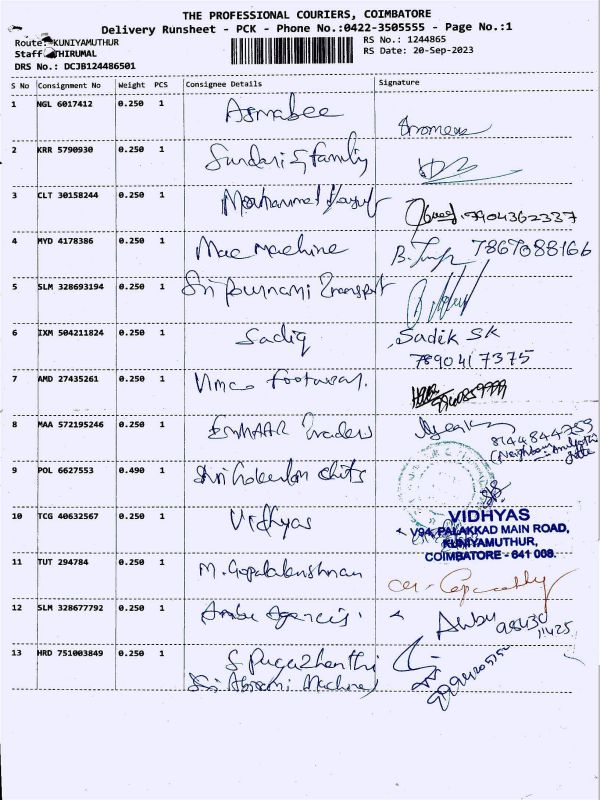 THE PROFESSIONAL COURIERS, COIMBATORE
Delivery Runsheet - PCK - Phone No.:0422-3505555 - Page No.:1
Route: KUNIYAMUTHUR
RS No.: 1244865
Staff THIRUMAL
RS Date: 20-Sep-2023
DRS No.: DCJB124486501
S No Consignment No Weight PCS Consignee Details Signature
1 NGL 6017412 0.250 1 Asmabee
2 KRR 5790930 0.250 1 Sundari & family
3 CLT 30158244 0.250 1 Mouhammed 7904362337
4 MYD 4178386 0.250 1 Mac Machine B. 7867088166
5 SLM 328693194 0.250 1 Sri Pournami Transport
6 IXM 504211824 0.250 1 Sadiq Sadik SK
7890417375
7 AMD 27435261 0.250 1 footwear.
8 MAA 572195246 0.250 1 EMMAAR Traders
8144844759
(Neighbour
9 POL 6627553 0.490 1 Sri Gokulam chits
10 TCG 40632567 0.250 1 Vidhyas
VIDHYAS
V94, PALAKKAD MAIN ROAD,
KUNIYAMUTHUR,
COIMBATORE - 641 008.
11 TUT 294784 0.250 1 M. Gopalakrishnan
12 SLM 328677792 0.250 1 Anbu Agencis. Anbu
98430
11425
13 HRD 751003849 0.250 1 S. Pugazhanthi
Sri Abirami Machines